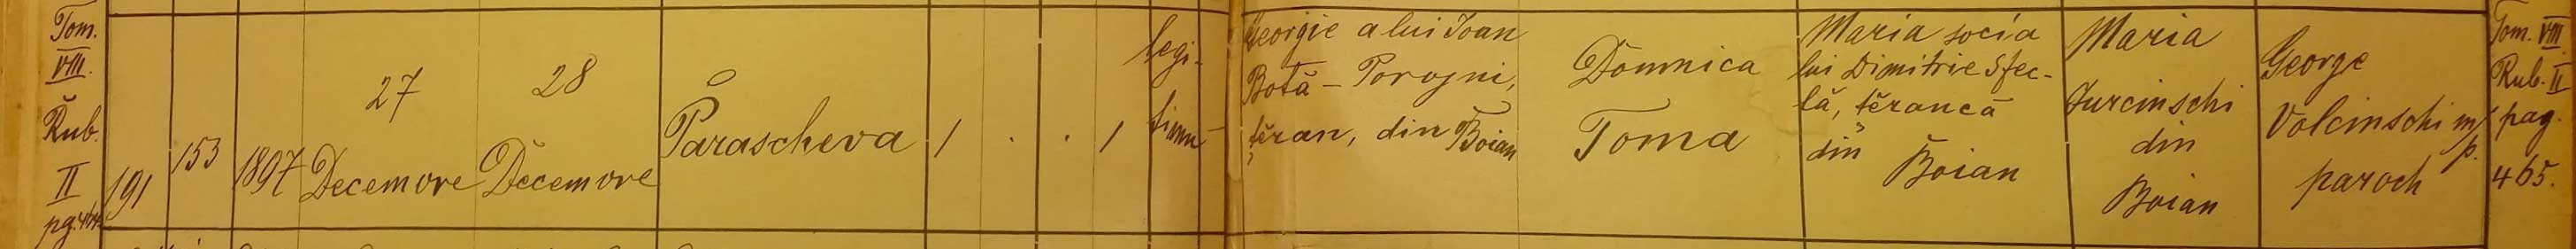 Tom.
VIII.
Rub.
II
pg. 464
191
153
1897
27
Decemvre
28
Decemvre
Parascheva
1 . . 1
legi-
timu
Georgie a lui Ioan
Botă - Porojni,
țĕran, din Boian
Domnica
Toma
Maria socia
lui Dimitrie Sfec-
lă, țĕrancă
din
Boian
Maria
Jurcinschi
din
Boian
George
Volcinschi m/p.
paroch
Tom. VIII
Rub. II
pag.
465.